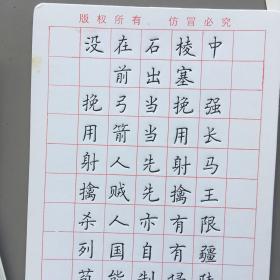 版权所有 仿冒必究
没在石棱中
前出塞
挽弓当挽强
用箭当用长
射人先射马
擒贼先擒王
杀人亦有限
列国自有疆
苟能制侵陵